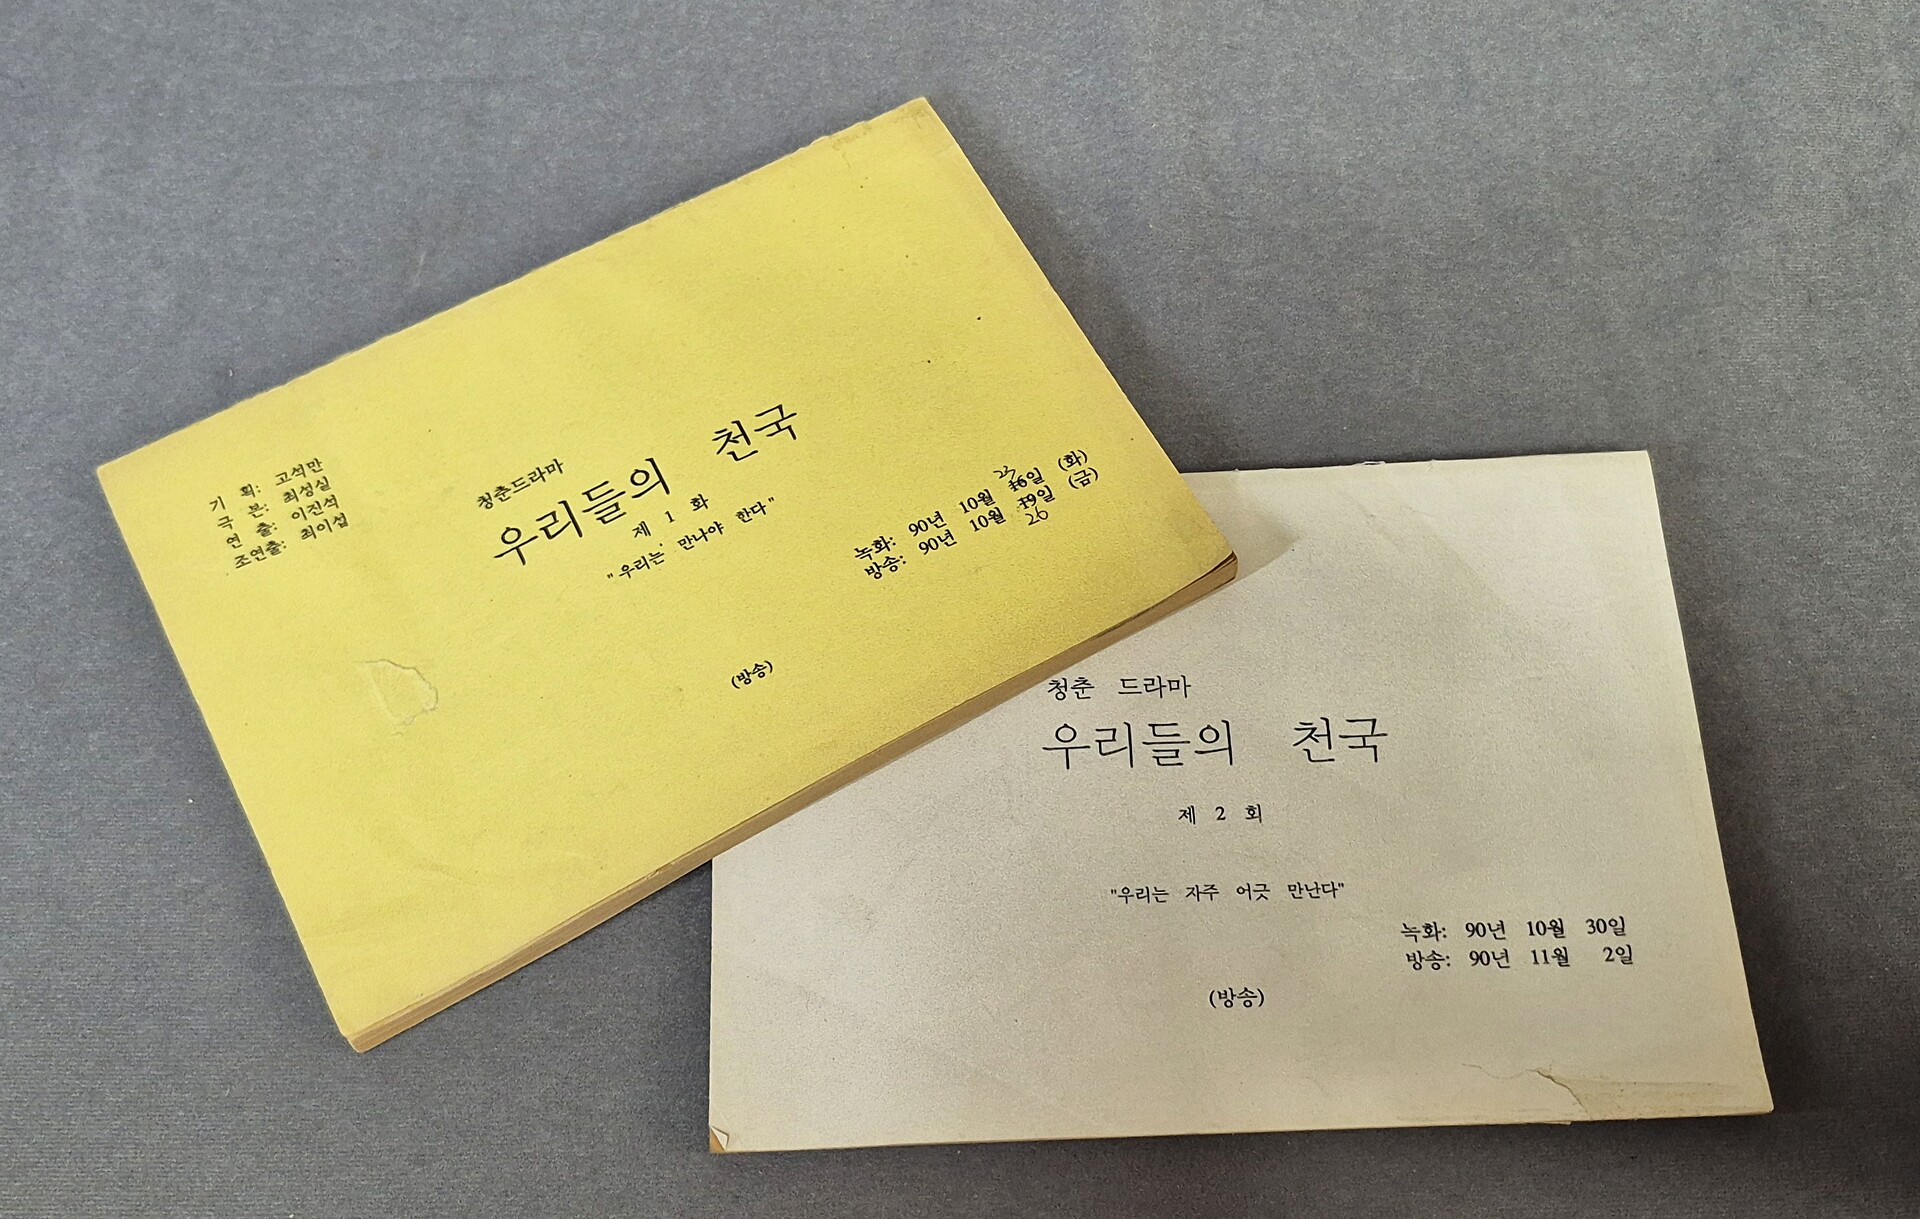 기 획: 고석만
극 본: 최성실
연 출: 이진석
조연출: 최이섭
청춘드라마
우리들의 천국
제 1 화
"우리는 만나야 한다"
23
녹화: 90년 10월 16일 (화)
방송: 90년 10월 19일 (금)
26
(방송)
청춘 드라마
우리들의 천국
제 2 회
"우리는 자주 어긋 만난다"
녹화: 90년 10월 30일
방송: 90년 11월 2일
(방송)